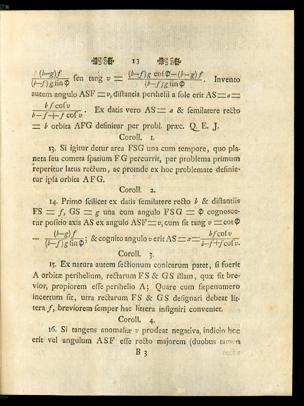 13
(b—g)f / (b—f)g sin Φ seu tang v = (b—f)g cos Φ—(b—g)f / (b—f)g sin Φ. Invento
autem angulo ASF = v, distantia perihelii a sole erit AS = a =
b f cos v / b—f+f cos v. Ex datis vero AS = a & semilatere recto
= b orbita AFG definitur per probl. præc. Q. E. J.
Coroll. 1.
13. Si igitur detur area FSG una cum tempore, quo pla-
neta seu cometa spatium FG percurrit, per problema primum
reperitur latus rectum, ac proinde ex hoc problemate definie-
tur ipsa orbita AFG.
Coroll. 2.
14. Primo scilicet ex datis semilatere recto b & distantiis
FS = f, GS = g una cum angulo FSG = Φ cognosce-
tur positio axis AS ex angulo ASF = v, cum sit tang v = cot Φ
— (b—g)f / (b—f)g sin Φ; & cognito angulo v erit AS = a = bf cos v / b—f+f cos v.
Coroll. 3.
15. Ex natura autem sectionum conicarum patet, si fuerit
A orbitæ perihelium, rectarum FS & GS illam, quæ sit bre-
vior, propiorem esse perihelio A; Quare cum sæpenumero
incertum sit, utra rectarum FS & GS designari debeat lit-
tera f, breviorem semper hac littera insigniri conveniet.
Coroll. 4.
16. Si tangens anomaliæ v prodeat negativa, indicio hoc
erit vel angulum ASF esse recto majorem (duobus tamen
B 3
rectis